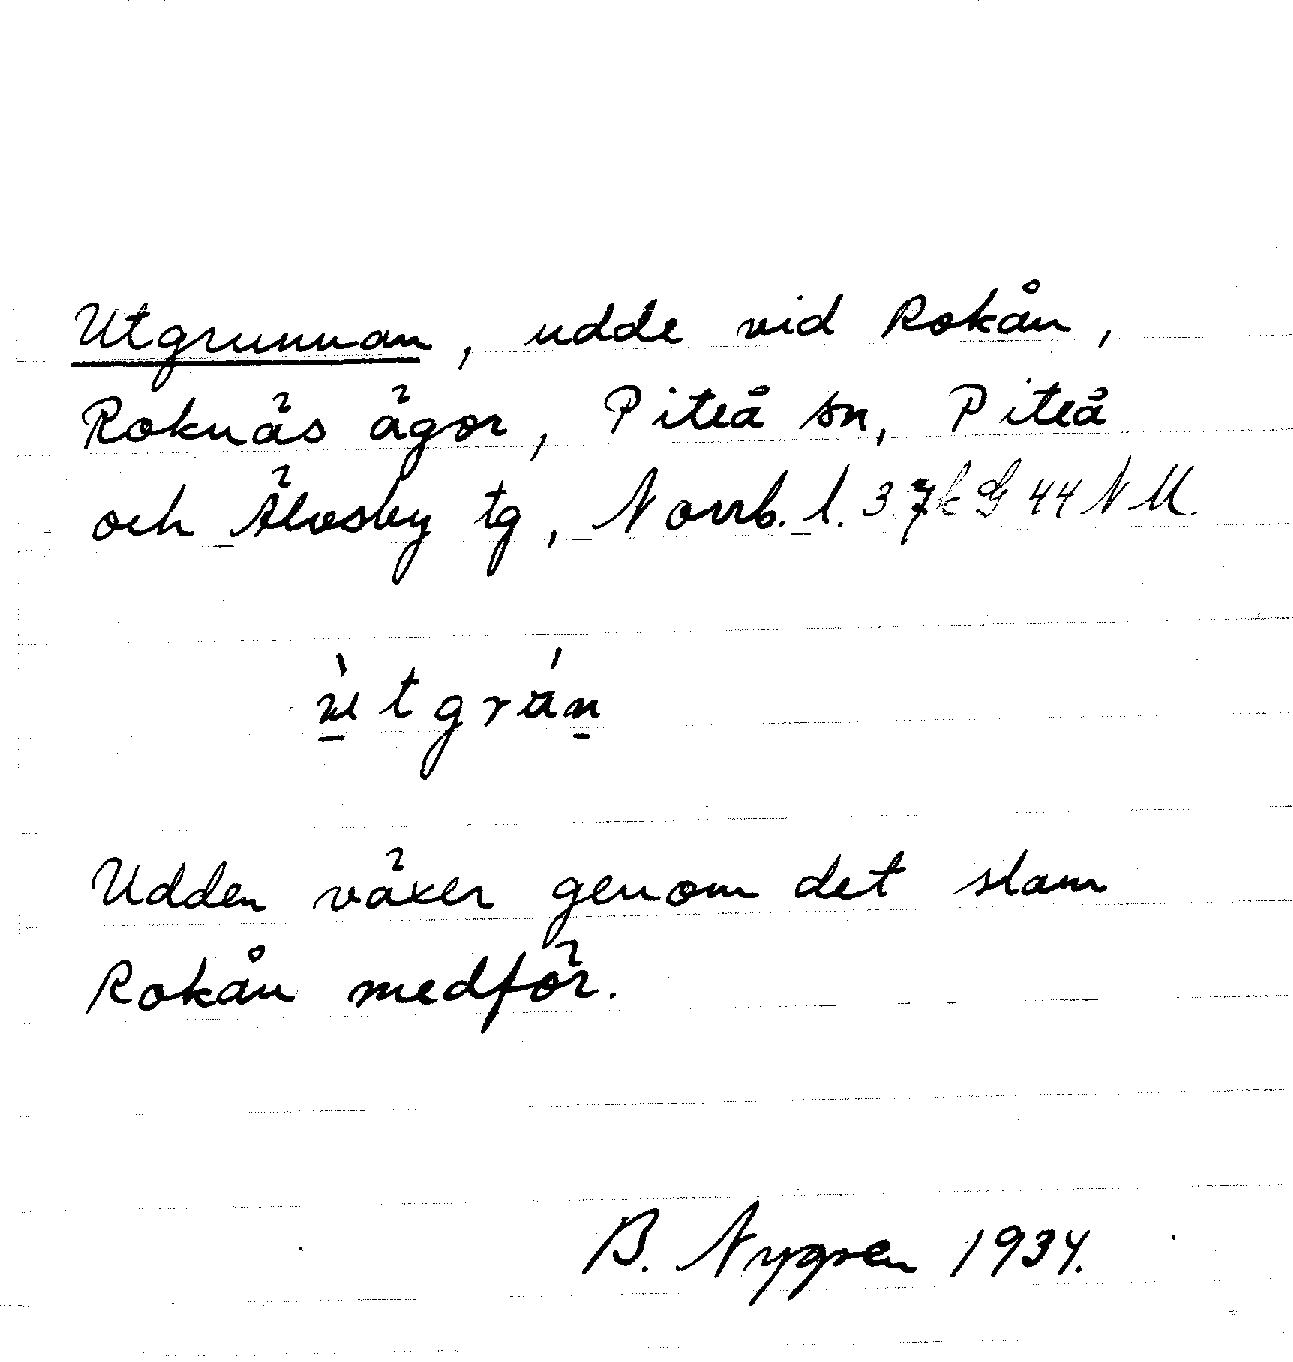 Utgrunnan, udde vid Rokån,
Roknäs ägor, Piteå sn, Piteå
och Älvsby tg, Norrb. l. 37k G 44 N M.
ù̱tgrán̠
Udden växer genom det slam
Rokån medför.
B. Nygren 1934.